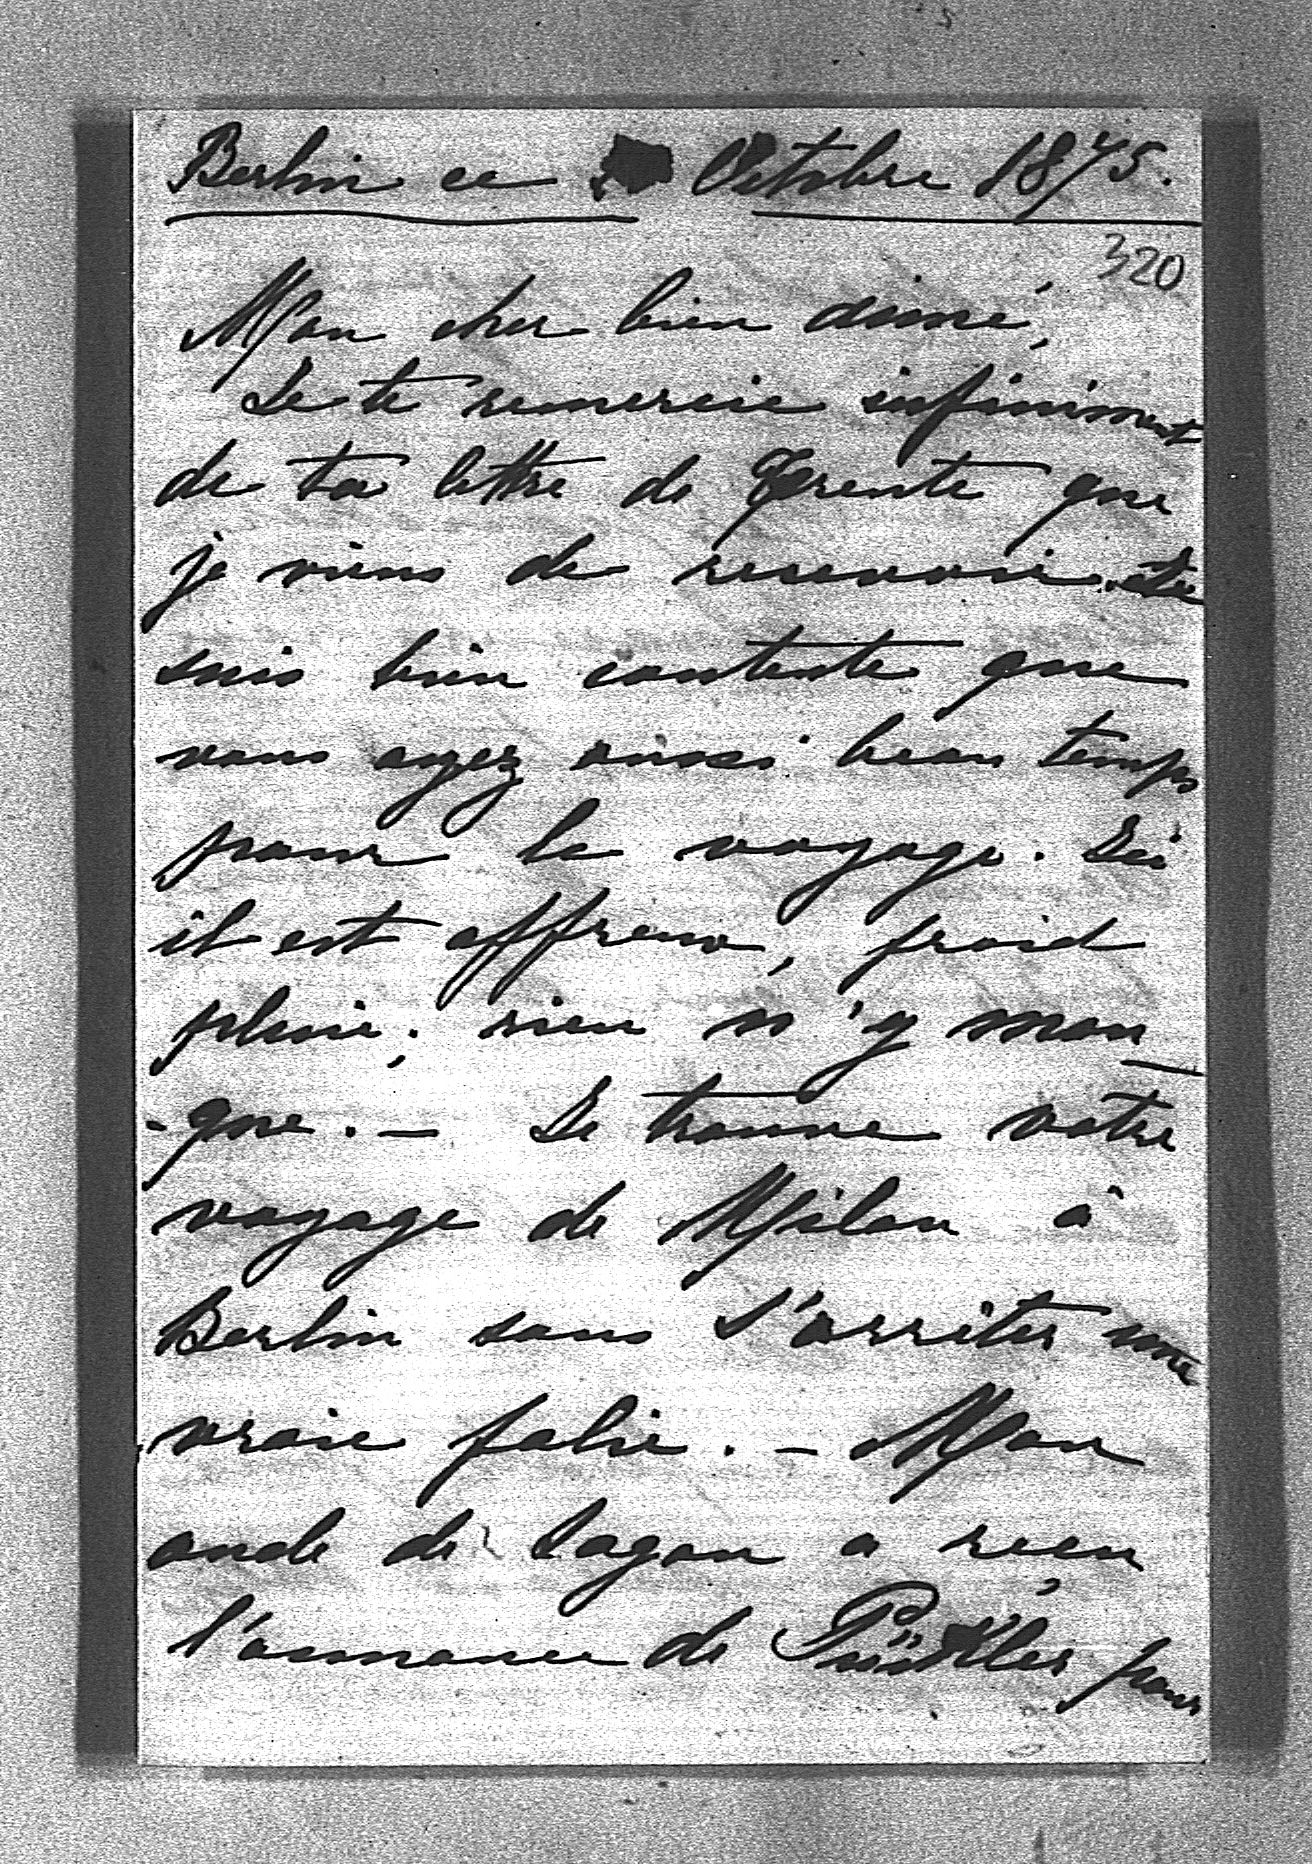 Berlin ce Octobre 1875.
320
Mon cher bien aimé,
Je te remercie infiniment
de ta lettre de Trente que
je viens de recevoir. Je
suis bien contente que
vous ayez aussi beau temps
pour le voyage. Ici
il est affreux, froid
pluie; rien n'y man
-que. — Je trouve votre
voyage de Milan à
Berlin sans s'arrêter une
vraie folie. — Mon
oncle de Sagan a reçu
l'annonce de Pückler pour